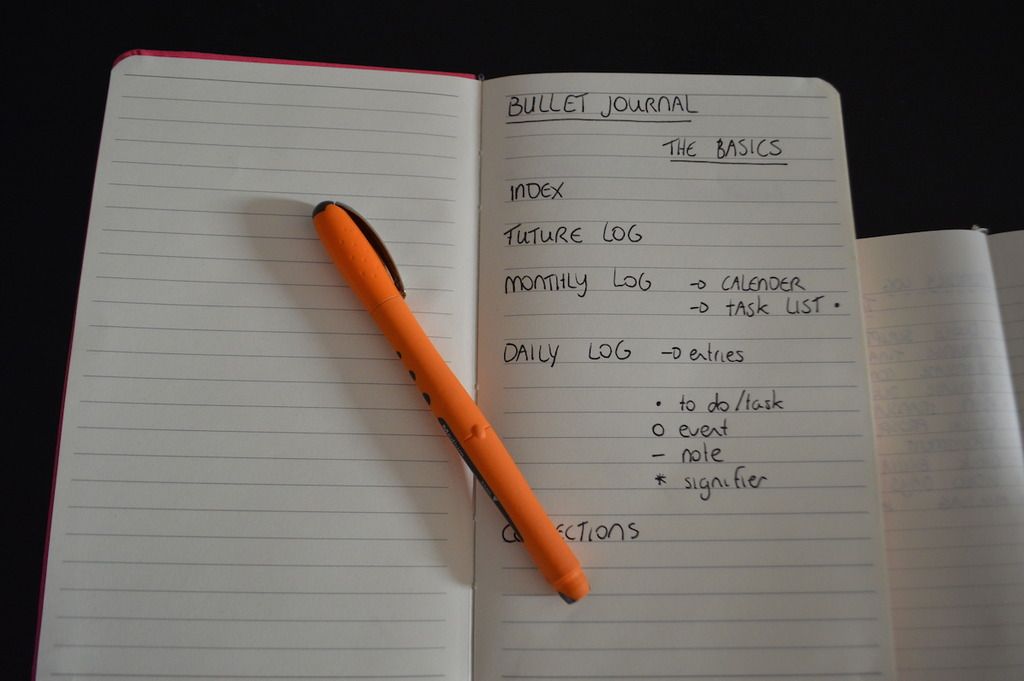 BULLET JOURNAL
THE BASICS
INDEX
FUTURE LOG
MONTHLY LOG → CALENDER
→ TASK LIST •
DAILY LOG → entries
• to do/task
O event
– note
* signifier